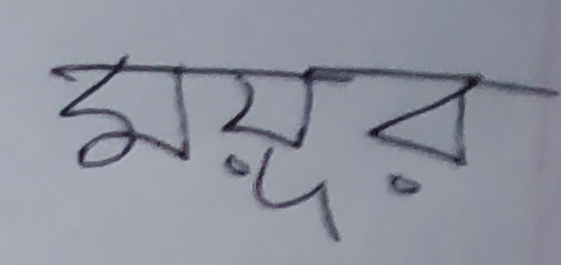 ময়ূর